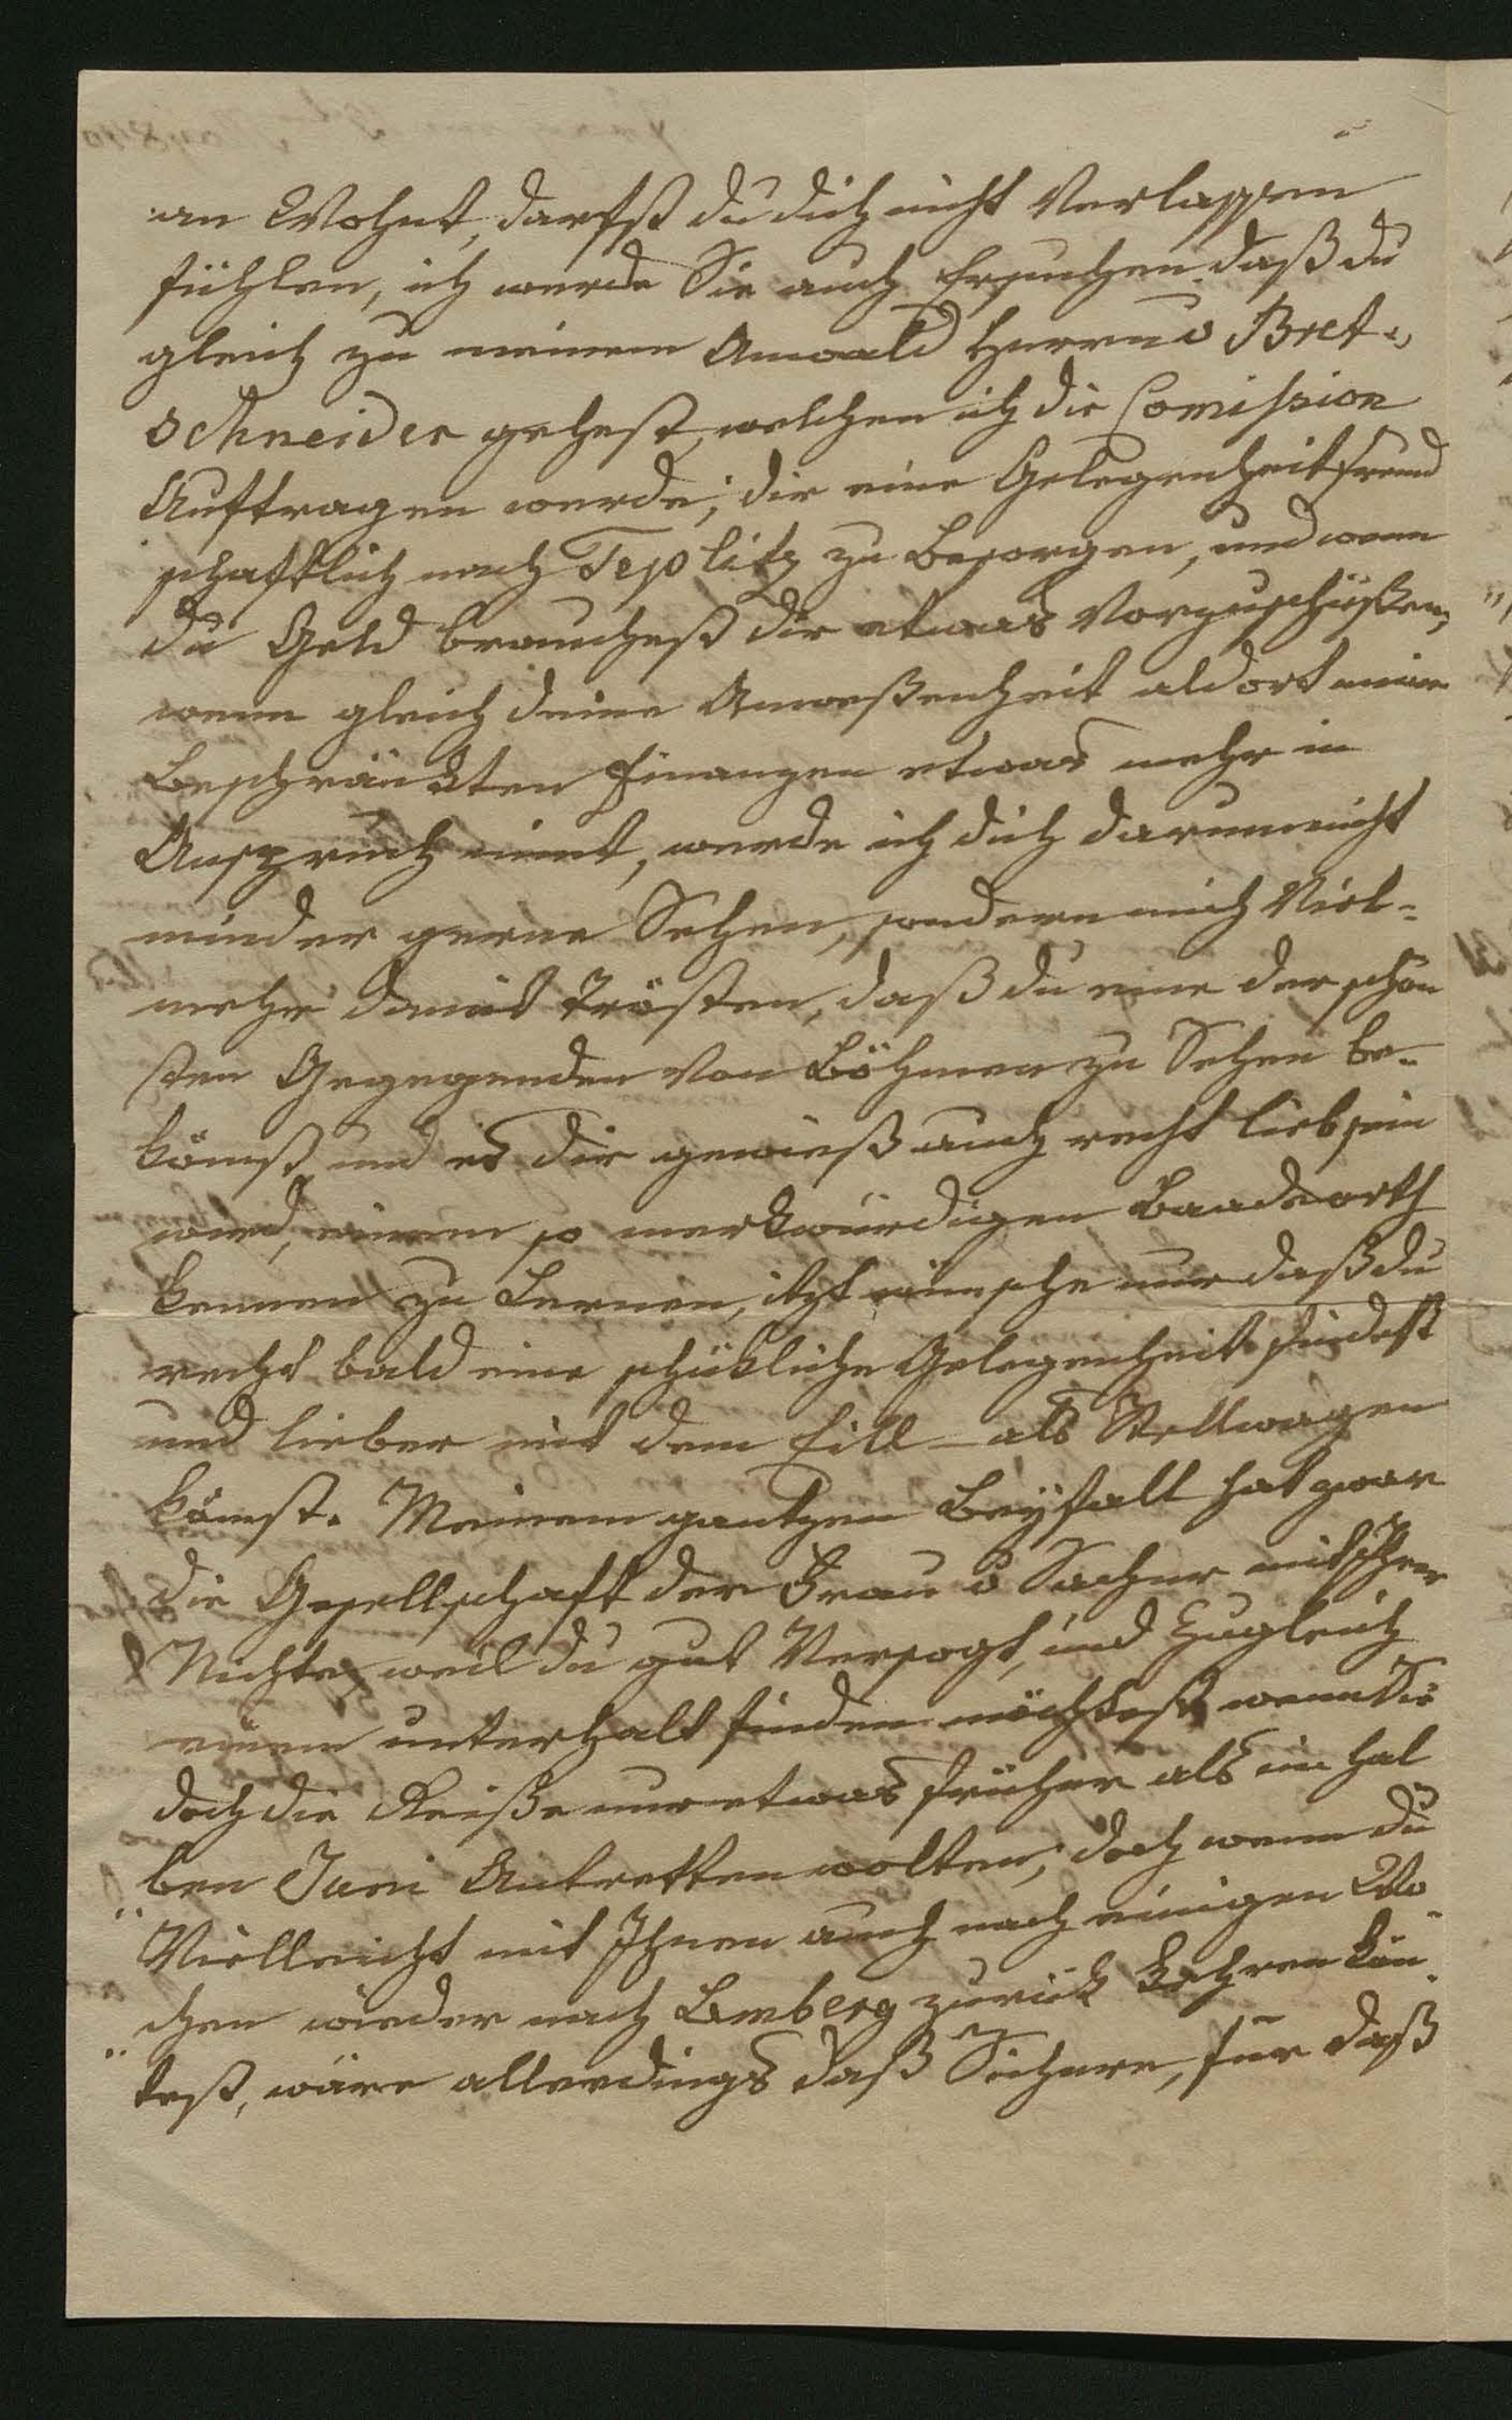 an Wohnt, darfst du dich nicht Verlassen
fühlen, ich werde Sie auch Ersuchen daß du
gleich zu meinem Anwald Herrn v Bret„
schneider gehest, welchen ich die Comission
Auftragen werde, dir eine Gelegenheit freund
schaftlich nach Teplitz zu Besorgen, und wenn
du Geld brauchest dir etwas Vorzuschüßen,
wenn gleich deine Anweßenheit aldort meine
Beschränkten Finanzen etwas mehr in
Anspruch nimt, werde ich dich darum nicht
minder gerne Sehen, sondern mich Viel-
mehr damit trösten, daß du eine der schön
sten Gegegenden von Böhmen zu Sehen be-
kömst, und es dir gewieß auch recht lieb sein
wird, einem so merkwürdigen Baadeorth
kennen zu Lernen, itzt wünsche nur daß du
recht bald eine schükliche Gelegenheit findest
und lieber mit dem Eill- als Stellwagen
kömst. Meinem gantzen Beyfall hat zwar
die Gesellschaft der Frau v Sacher mit Ihrer
Nichte, weil du gut Versogt, und Zugleich
einem unterhalt finden möchtest, wenn Sie
doch die Reiße nur etwas früher als im hal
ben Juni Antretten wolten; doch wenn du
Vielleicht mit Ihnen auch nach einigen Wo
chen wieder nach Lemberg zurück kehren kön
test, wäre allerdings daß Sichere, für daß